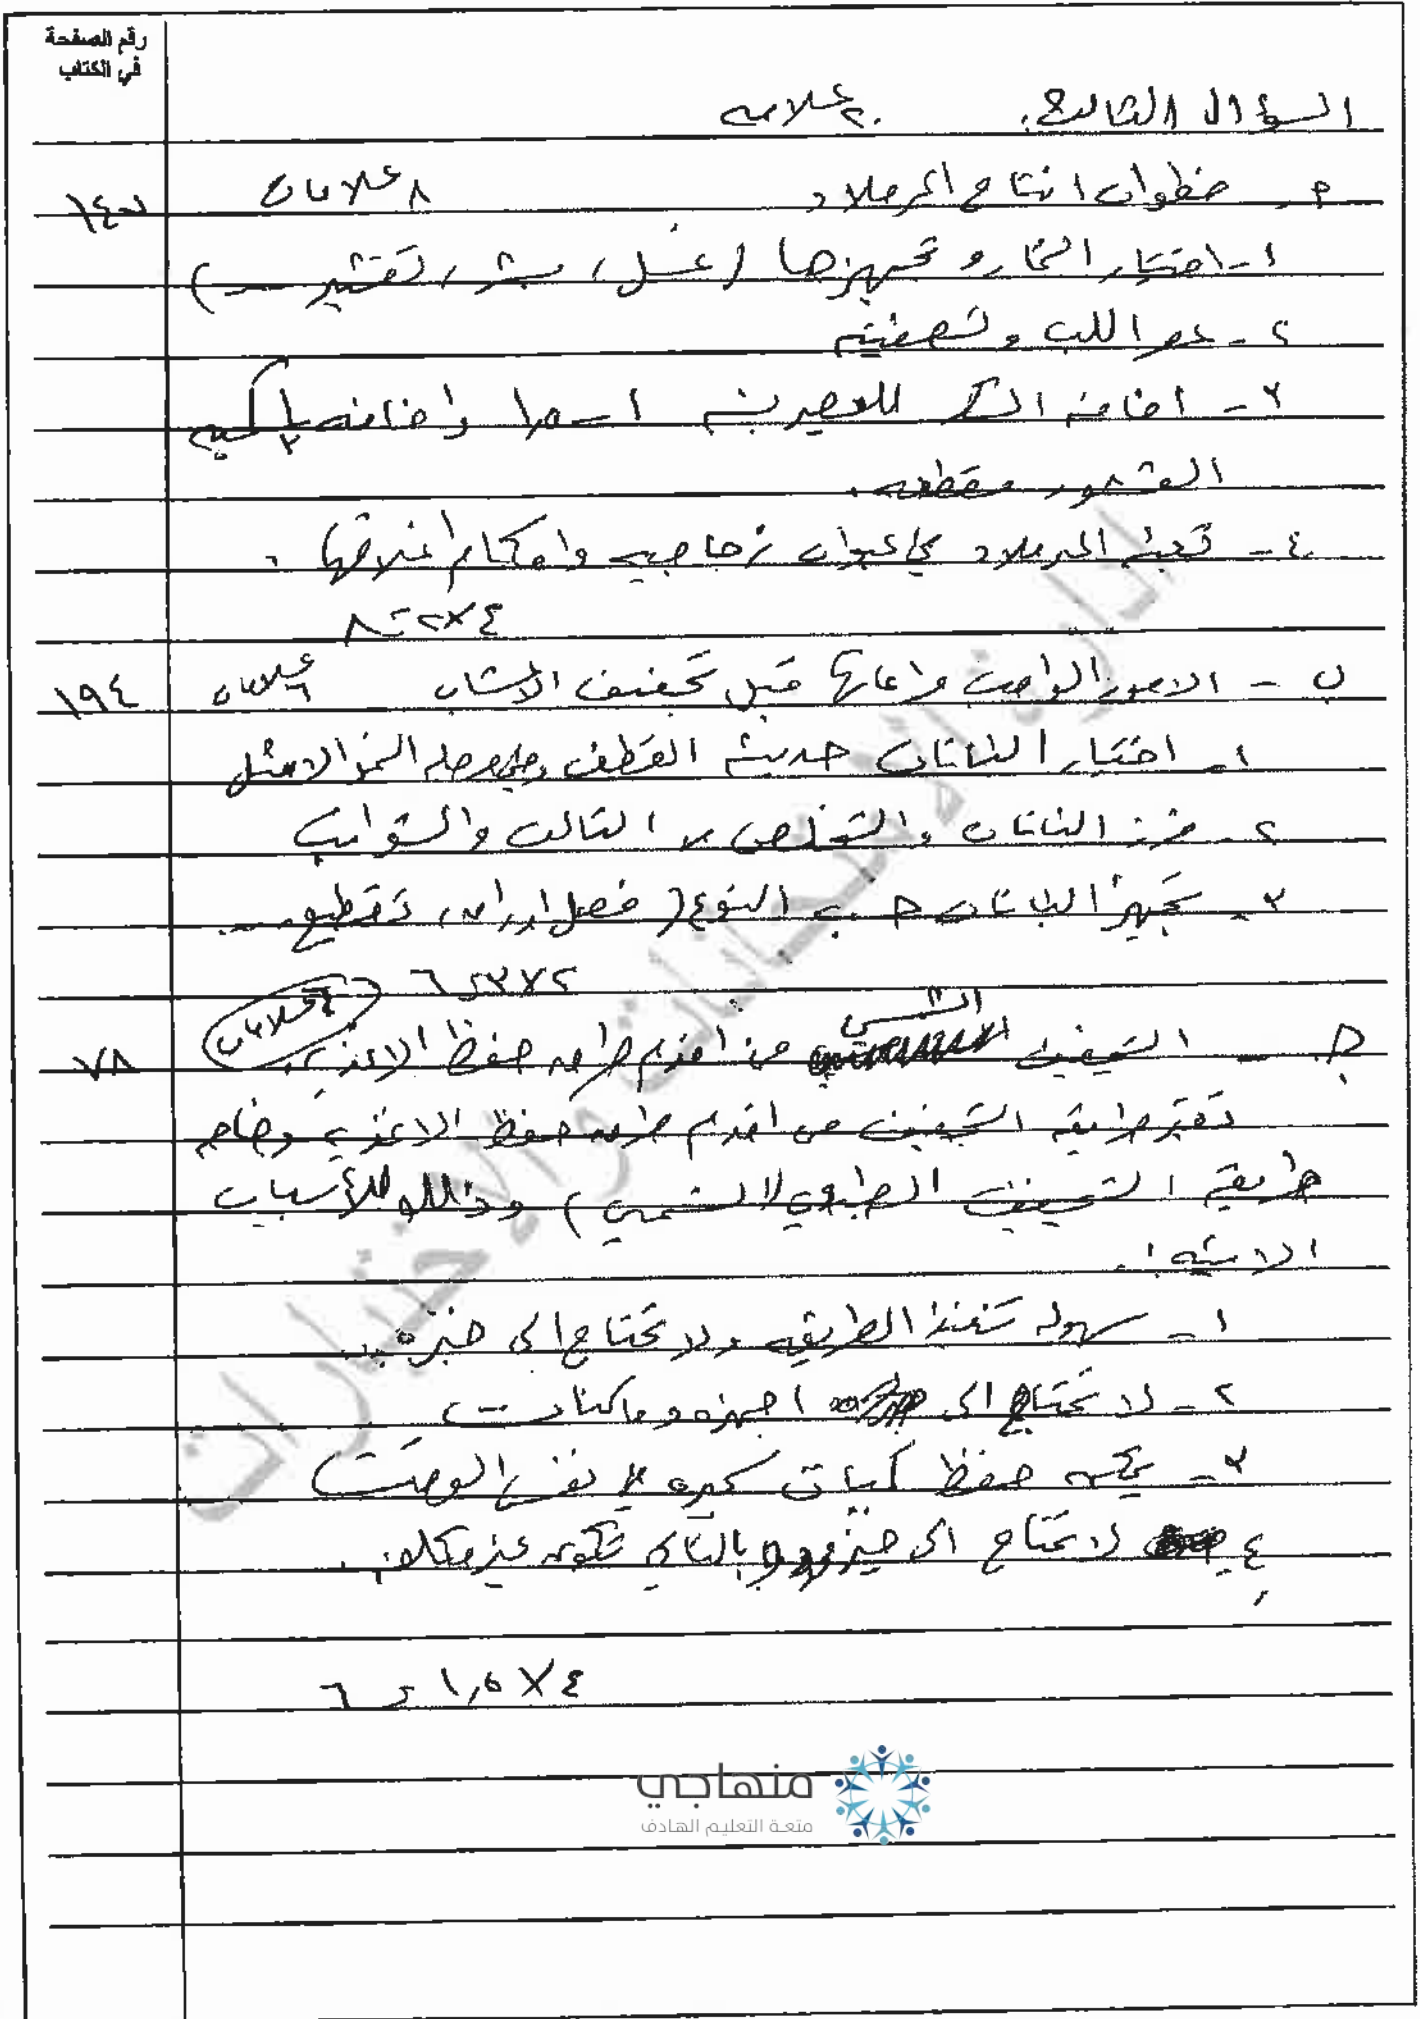 رقم الصفحة
في الكتاب
السؤال الثالث: ٢٠ علامة
أ - خطوات انتاج المرملاد ٨ علامات
١- اختيار الثمار و تجهيزها (غسل، بشر، تقشير ...)
٢- عصر اللب وتصفيته
٣- اضافة السكر للعصير بنسبة ١ - ١٫٥ واضافة ١/٢ كمية
القشور مقطعة.
٤- تعبئة المرملاد في عبوات زجاجية واحكام اغلاقها.
٤×٢=٨
ب - الامور الواجب مراعاتها قبل تجفيف الاعشاب ٦ علامات
١٩٤
١- اختيار النباتات حديثة القطف وفي مرحلة النمو الامثل
٢- فرز النباتات والتخلص من التالف والشوائب
٣- تجهيز النباتات حسب النوع (فصل اوراق، تقطيع...
٢×٣=٦
ج - التجفيف الشمسي من اقدم طرق حفظ الاغذية. ٦ علامات
٧٨
تعتبر طريقة التجفيف من اقدم طرق حفظ الاغذية وخاصة
طريقة التجفيف الطبيعي (الشمسي) وذلك للأسباب
الاتية:
١- سهولة تنفيذ الطريقة ولا تحتاج الى خبرة
٢- لا تحتاج الى اجهزة وماكنات
٣- يمكن حفظ كميات كبيرة في نفس الوقت
٤- لا تحتاج الى وبالتالي تكون غير مكلفة.
٤×١٫٥=٦
منهاجي
متعة التعليم الهادف
إدارة الامتحانات والاختبارات